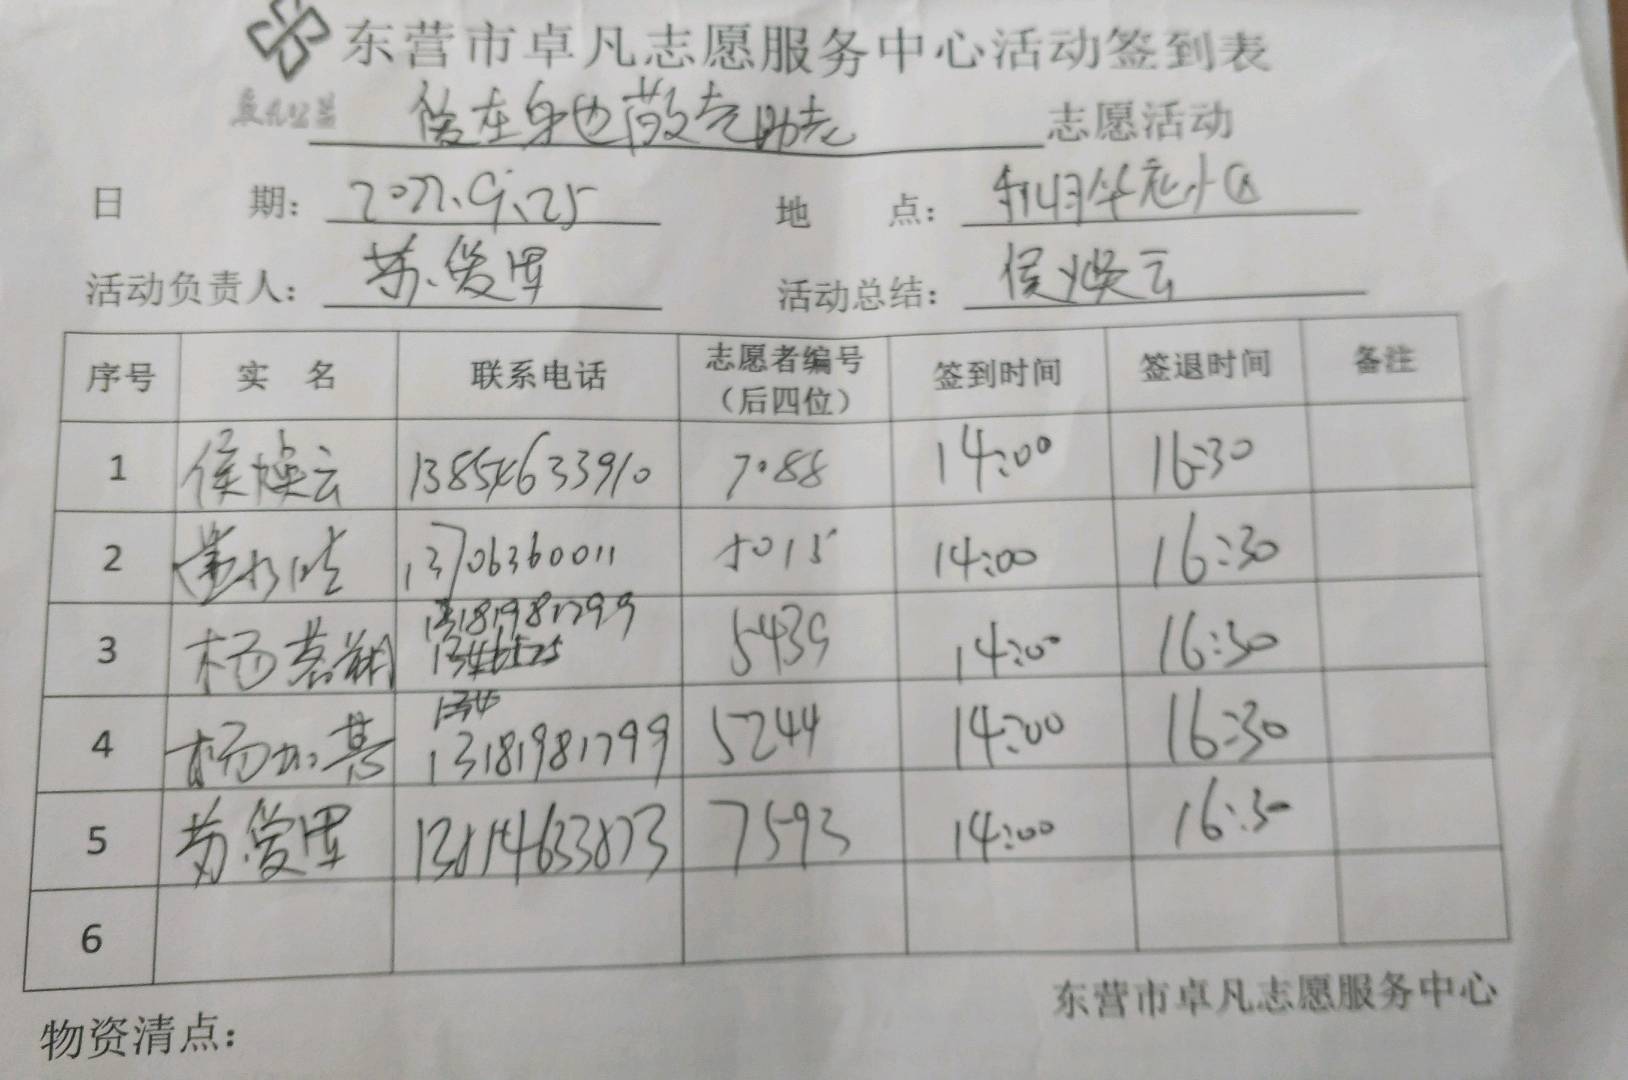 东营市卓凡志愿服务中心活动签到表
卓凡公益
爱在身边敬老助老 志愿活动
日 期： 2022.9.25 地 点： 利明华苑小区
活动负责人： 苏爱军 活动总结： 侯焕云
序号 实 名 联系电话 志愿者编号（后四位） 签到时间 签退时间 备注
1 侯焕云 13854633910 7088 14:00 16:30
2 13706360011 5015 14:00 16:30
3 杨慕翔 13181981799 5439 14:00 16:30
4 杨如慧 13181981799 5244 14:00 16:30
5 苏爱军 13814633873 7593 14:00 16:30
6
东营市卓凡志愿服务中心
物资清点：